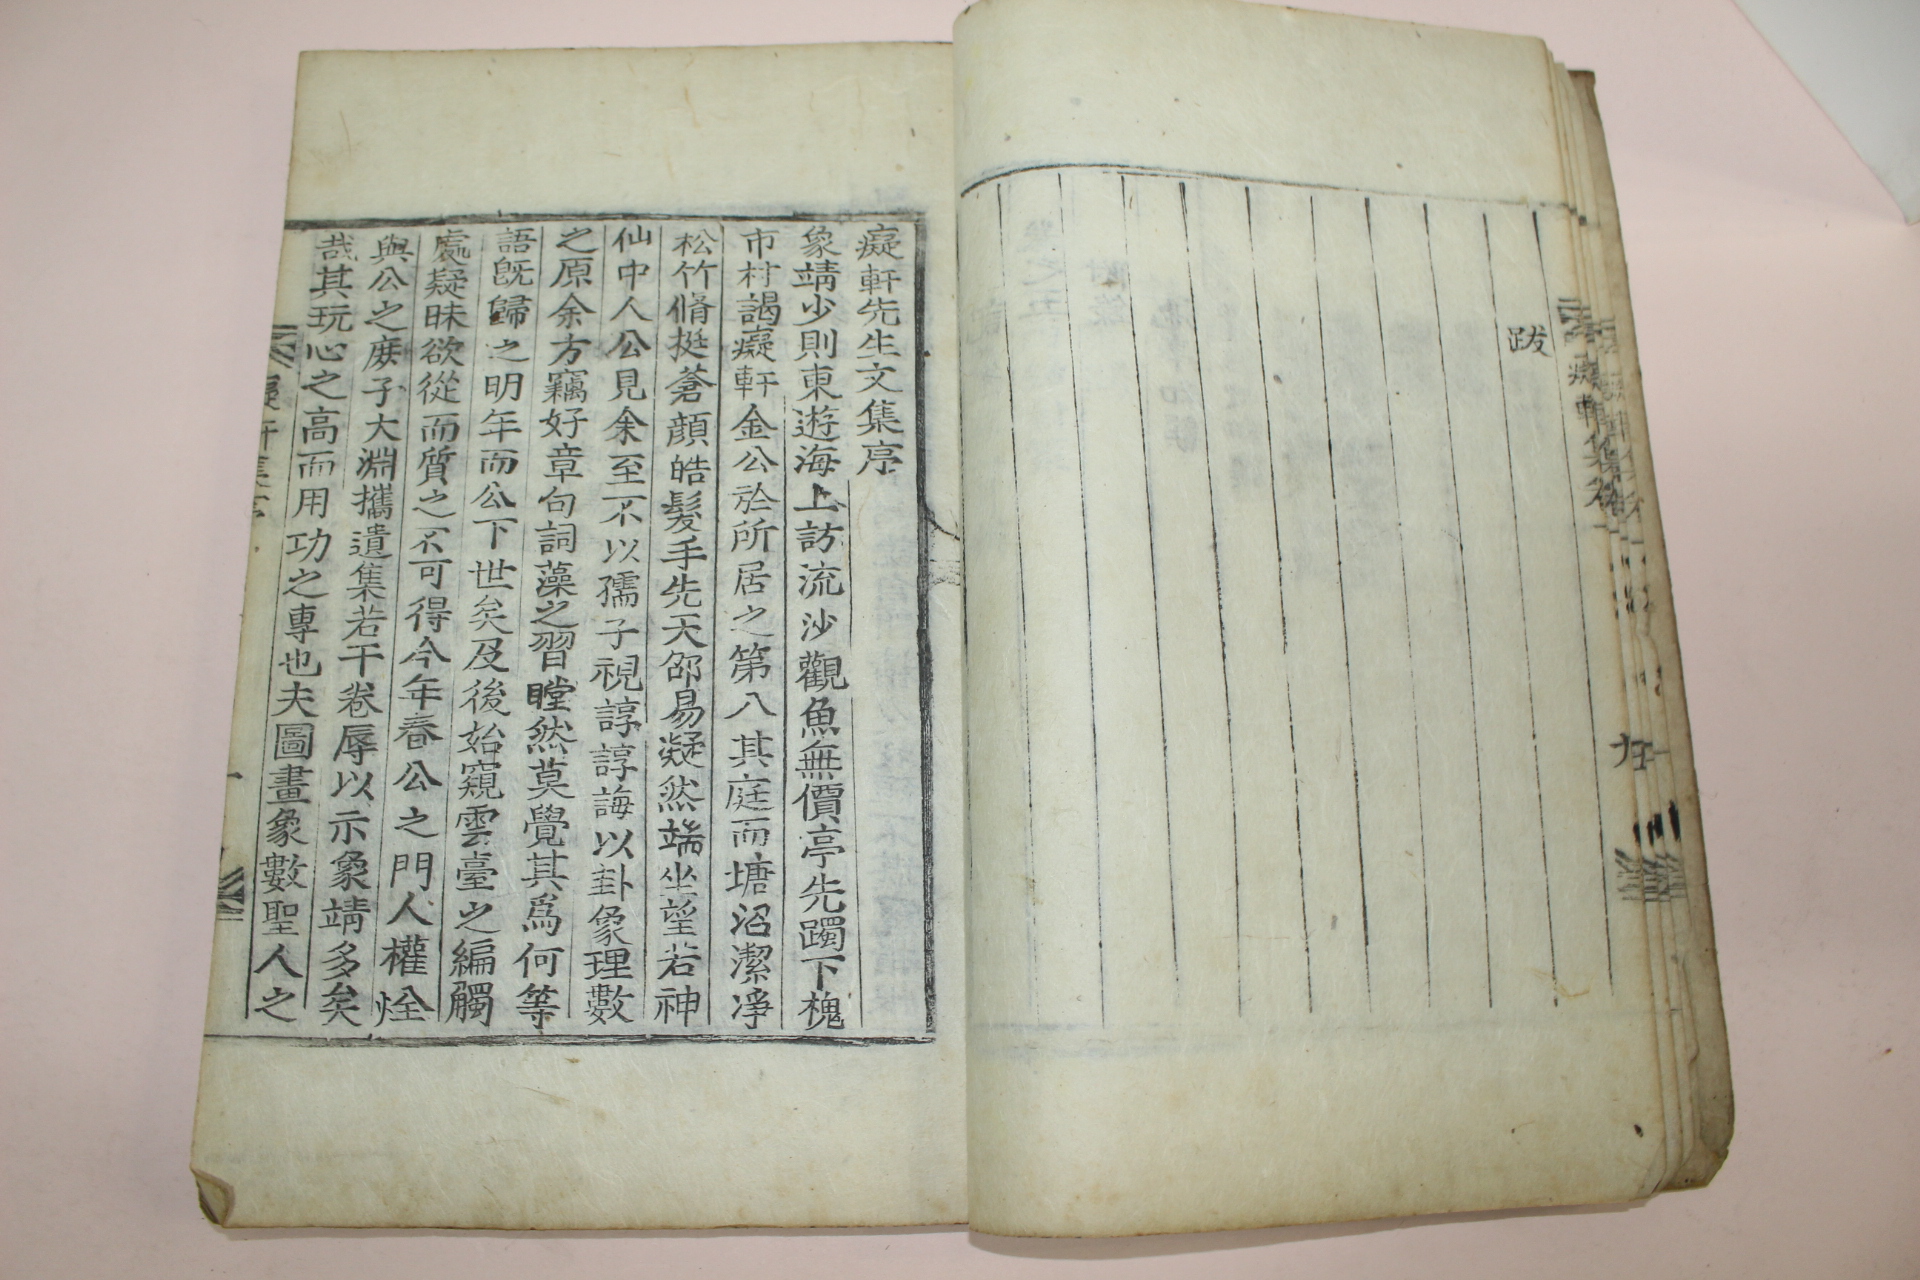 跋
癡軒先生文集序
象靖少則東遊海上訪流沙觀魚無價亭先躅下槐
市村謁癡軒金公於所居之第八其庭而塘沼潔淨
松竹脩挺蒼顔皓髮手先天邵易凝然端坐望若神
仙中人公見余至不以孺子視諄諄誨以卦象理數
之原余方竊好章句詞藻之習瞠然莫覺其爲何等
語旣歸之明年而公下世矣及後始窺雲臺之編觸
處疑昧欲從而質之不可得今年春公之門人權烇
與公之庶子大淵攜遺集若干卷辱以示象靖多矣
哉其玩心之高而用功之專也夫圖畫象數聖人之